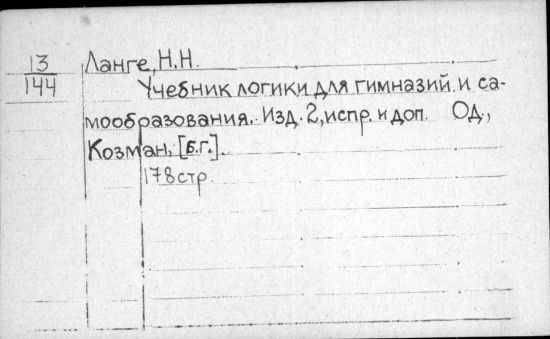 13
144
Ланге, Н.Н.
Учебник логики для гимназий и са-
мообразования. Изд. 2, испр. и доп. Од.,
Козман, [б.г.].
178 стр.